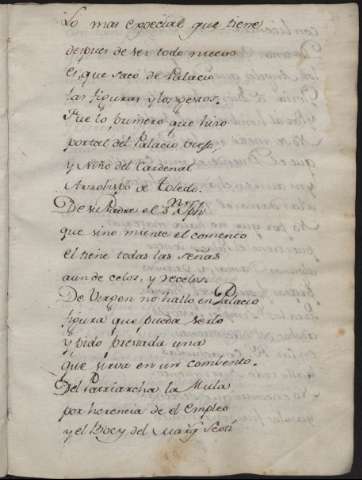 Lo mas especial que tiene
despues de ser todo nuevo
es, que saco de Palacio
las figuras y los gestos.
Fue lo primero que hizo
portal del Palacio viejo,
y Niño del Cardenal
Arzobispo de Toledo.
De su Padre el Sr. Jph
que sino miente el comento
el tiene todas las señas
aun de celos, y recelos.
De Virgen no hallo en Palacio
figura que pueda serlo
y pidio prestada una
que sirva en un combento.
Del Patriarcha la Mula
por herencia de el empleo
y el Buey del Marq. Scoti